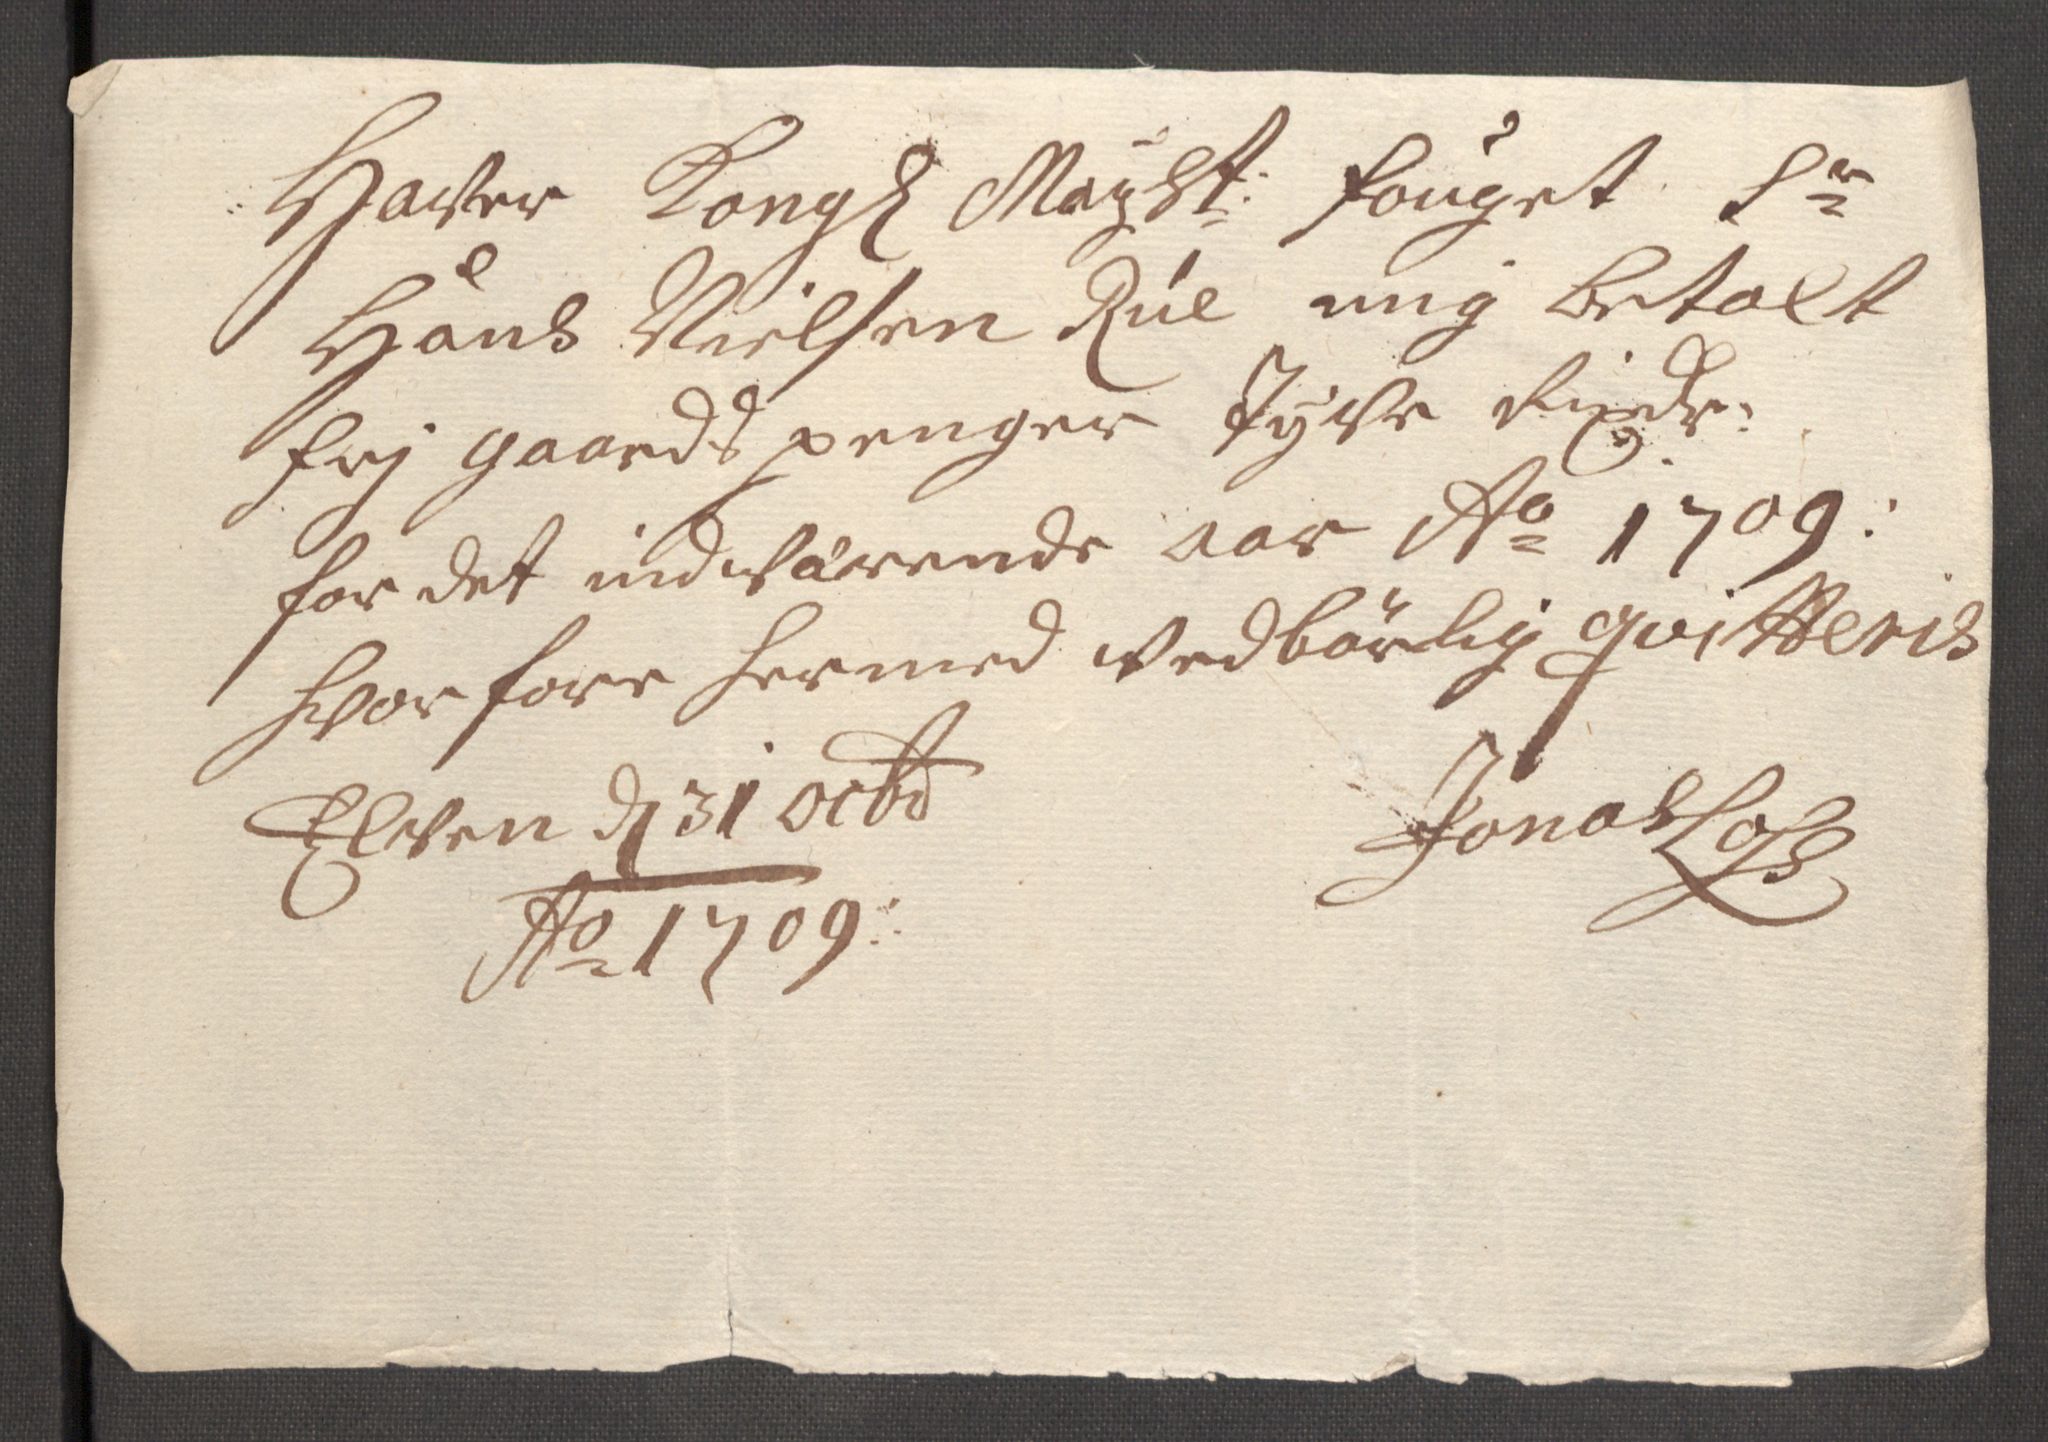 Haver Kongl Mayst: fouget Sr
Hans Nielsen Rue mig betalt
frj gaards penger Tyve Rixdr:
for det indverende aar Ao 1709:
hvor fore hermed vedbörlig qvitteris
Elven d 31 octbr
Ao 1709:
Jonas